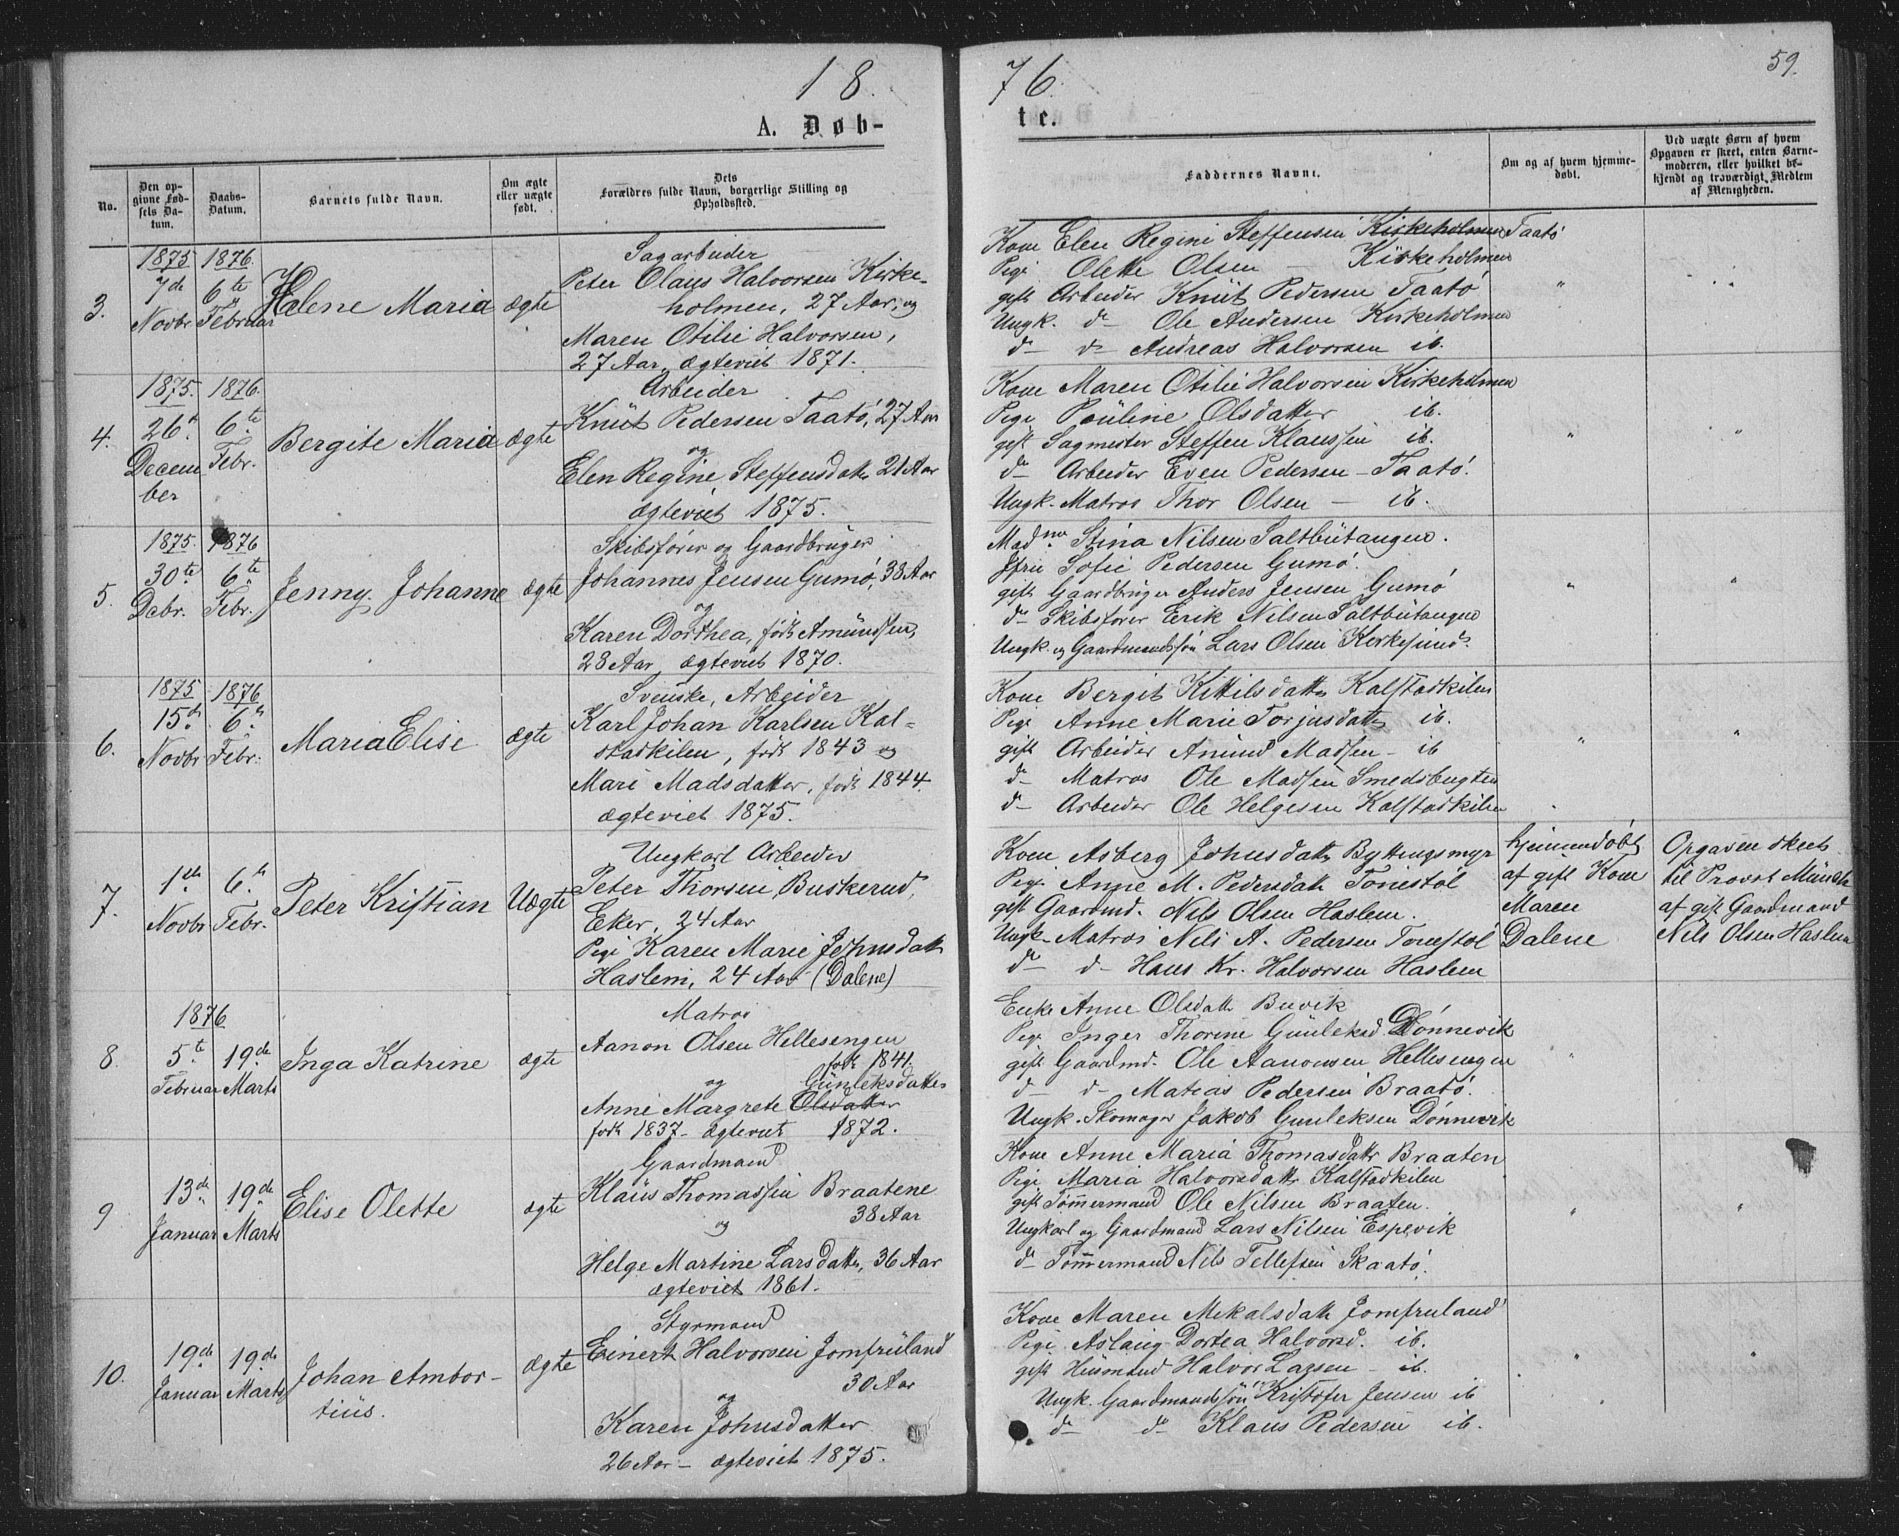 18
76.
59.
A. Døb-
te.
No.
Den opgivne Fødsels Datum.
Daabs-Datum.
Barnets fulde Navn.
Om ægte eller uægte født.
Dets Forældres fulde Navn, borgerlige Stilling og Opholdssted.
Faddernes Navne.
Om og af hvem hjemmedøbt.
Ved uægte Børn af hvem Opgaven er skeet, enten Barnemoderen, eller hvilket bekjendt og troværdigt Medlem af Menigheden.
3.
1875 7de Novbr
1876. 6te Februar
Helene Maria
ægte
Sagarbeider
Peter Olaus Halvorsen Kirke-
holmen, 27 Aar, og
Maren Otilie Halvorsen,
27 Aar, ægteviet 1871.
Kone Elen Regine Steffensen Kirkeholmen Taatø
Pige Olette Olsen — Kirkeholmen
gift Arbeider Knüt Pedersen Taatø
Ungk. d— Ole Andersen Kirkeholmen
d— d— Andreas Halvorsen ib.
"
"
4.
1875. 26de December
1876. 6te Febr.
Bergite Maria
ægte
Arbeider
Knüt Pedersen Taatø, 27 Aar
og
Elen Regine Steffensdatr. 21 Aar
ægteviet 1875.
Kone Maren Otilie Halvorsen Kirkeholmen
Pige Pauline Olsdatter ib.
gift Sagmester Steffen Klaussen ib.
do Arbeider Even Pedersen — Taatø.
Ungk. Matros Thor Olsen — ib.
"
"
5.
1875. 30te Debr.
1876 6te Febr.
Jenny Johanne
ægte
Skibsfører og Gaardbruger
Johannes Jensen Gumø, 38 Aar
og
Karen Dorthea, født Amündsen,
28 Aar ægteviet 1870.
Madme Stina Nilsen Saltbütangen.
Jfru Sofie Pedersen Gumø.
gift Gaardbruger Anders Jensen Gumø
do Skibsfører Erik Nilsen Saltbütangen
Ungk. og Gaardmandssøn Lars Olsen Kirkesund.
"
"
6.
1875 15de Novbr
1876 6te Febr.
Maria Elise
ægte
Svenske, Arbeider
Karl Johan Karlsen Kal-
stadkilen, født 1843 og
Mari Madsdatter, født 1844.
ægteviet 1875.
Kone Bergit Kittilsdattr Kalstadkilen
Pige Anne Marie Torjusdattr ib.
gift Arbeider Amund Madsen — ib
do Matros Ole Madsen Smedsbugten
do Arbeider Ole Helgesen Kalstadkilen
"
"
7.
1ste Novbr
6te Febr.
Peter Kristian
Uægte
Ungkarl Arbeider
Peter Thorsen Buskerud,
Eker, 24 Aar
Pige Karen Marie Johnsdatr
Haslem, 24 Aar (Dalene)
Kone Asberg Johnsdattr Byttingsmyr
Pige Anne M. Pedersdatr Tonestøl
gift Gaardmd. Nils Olsen Haslem.
Ungk. Matros Nils A. Pedersen Tonestøl
do d— Hans Kr. Halvorsen Haslem
hjemmedøbt
af gift Kone
Maren
Dalene
Opgaven skeet
til Provst Münch
af gift Gaardmand
Nils Olsen Haslem
8.
1876 5te Februar
19de Marts
Inga Katrine
ægte
Matros
Aanon Olsen Hellesengen
født 1841.
og Günleksdatter
Anne Margrete Olsdatter
født 1837 — ægteviet 1872.
Enke Anne Olsdatr Buvik
Pige Inger Thorine Günleksd. Dønnevik
gift Gaardmd. Ole Aanonsen Hellesengen
d— d— Matias Pedersen Braatø.
Ungk. Skomager Jakob Gunleksen Dønnevik
"
9
13de Januar
19de Marts
Elise Olette
ægte
Gaardmand
Klaus Thomassen Braatene
38 Aar
og
Helge Martine Larsdattr, 36 Aar
ægteviet 1861.
Kone Anne Maria Thomasdattr Braaten
Pige Maria Halvorsdattr Kalstadkilen
gift Tømmermand Ole Nilsen Braaten.
Ungkarl og Gaardmand Lars Nilsen Espevik
do Tømmermand Nils Tellefsen Skaatø.
"
"
10.
19de Januar
19de Marts
Johan Ambor-
tius.
ægte
Styrmand
Einert Halvorsen Jomfruland
30 Aar
og
Karen Johnsdatter
26 Aar — ægteviet 1875.
Kone Maren Mikalsdatr Jomfruland
Pige Aslaug Dortea Halvorsd. ib.
gift Husmand Halvor Larsen — ib.
Ungk. Gaardmandssøn Kristofer Jensen ib
d— do Klaus Pedersen ib.
"
"